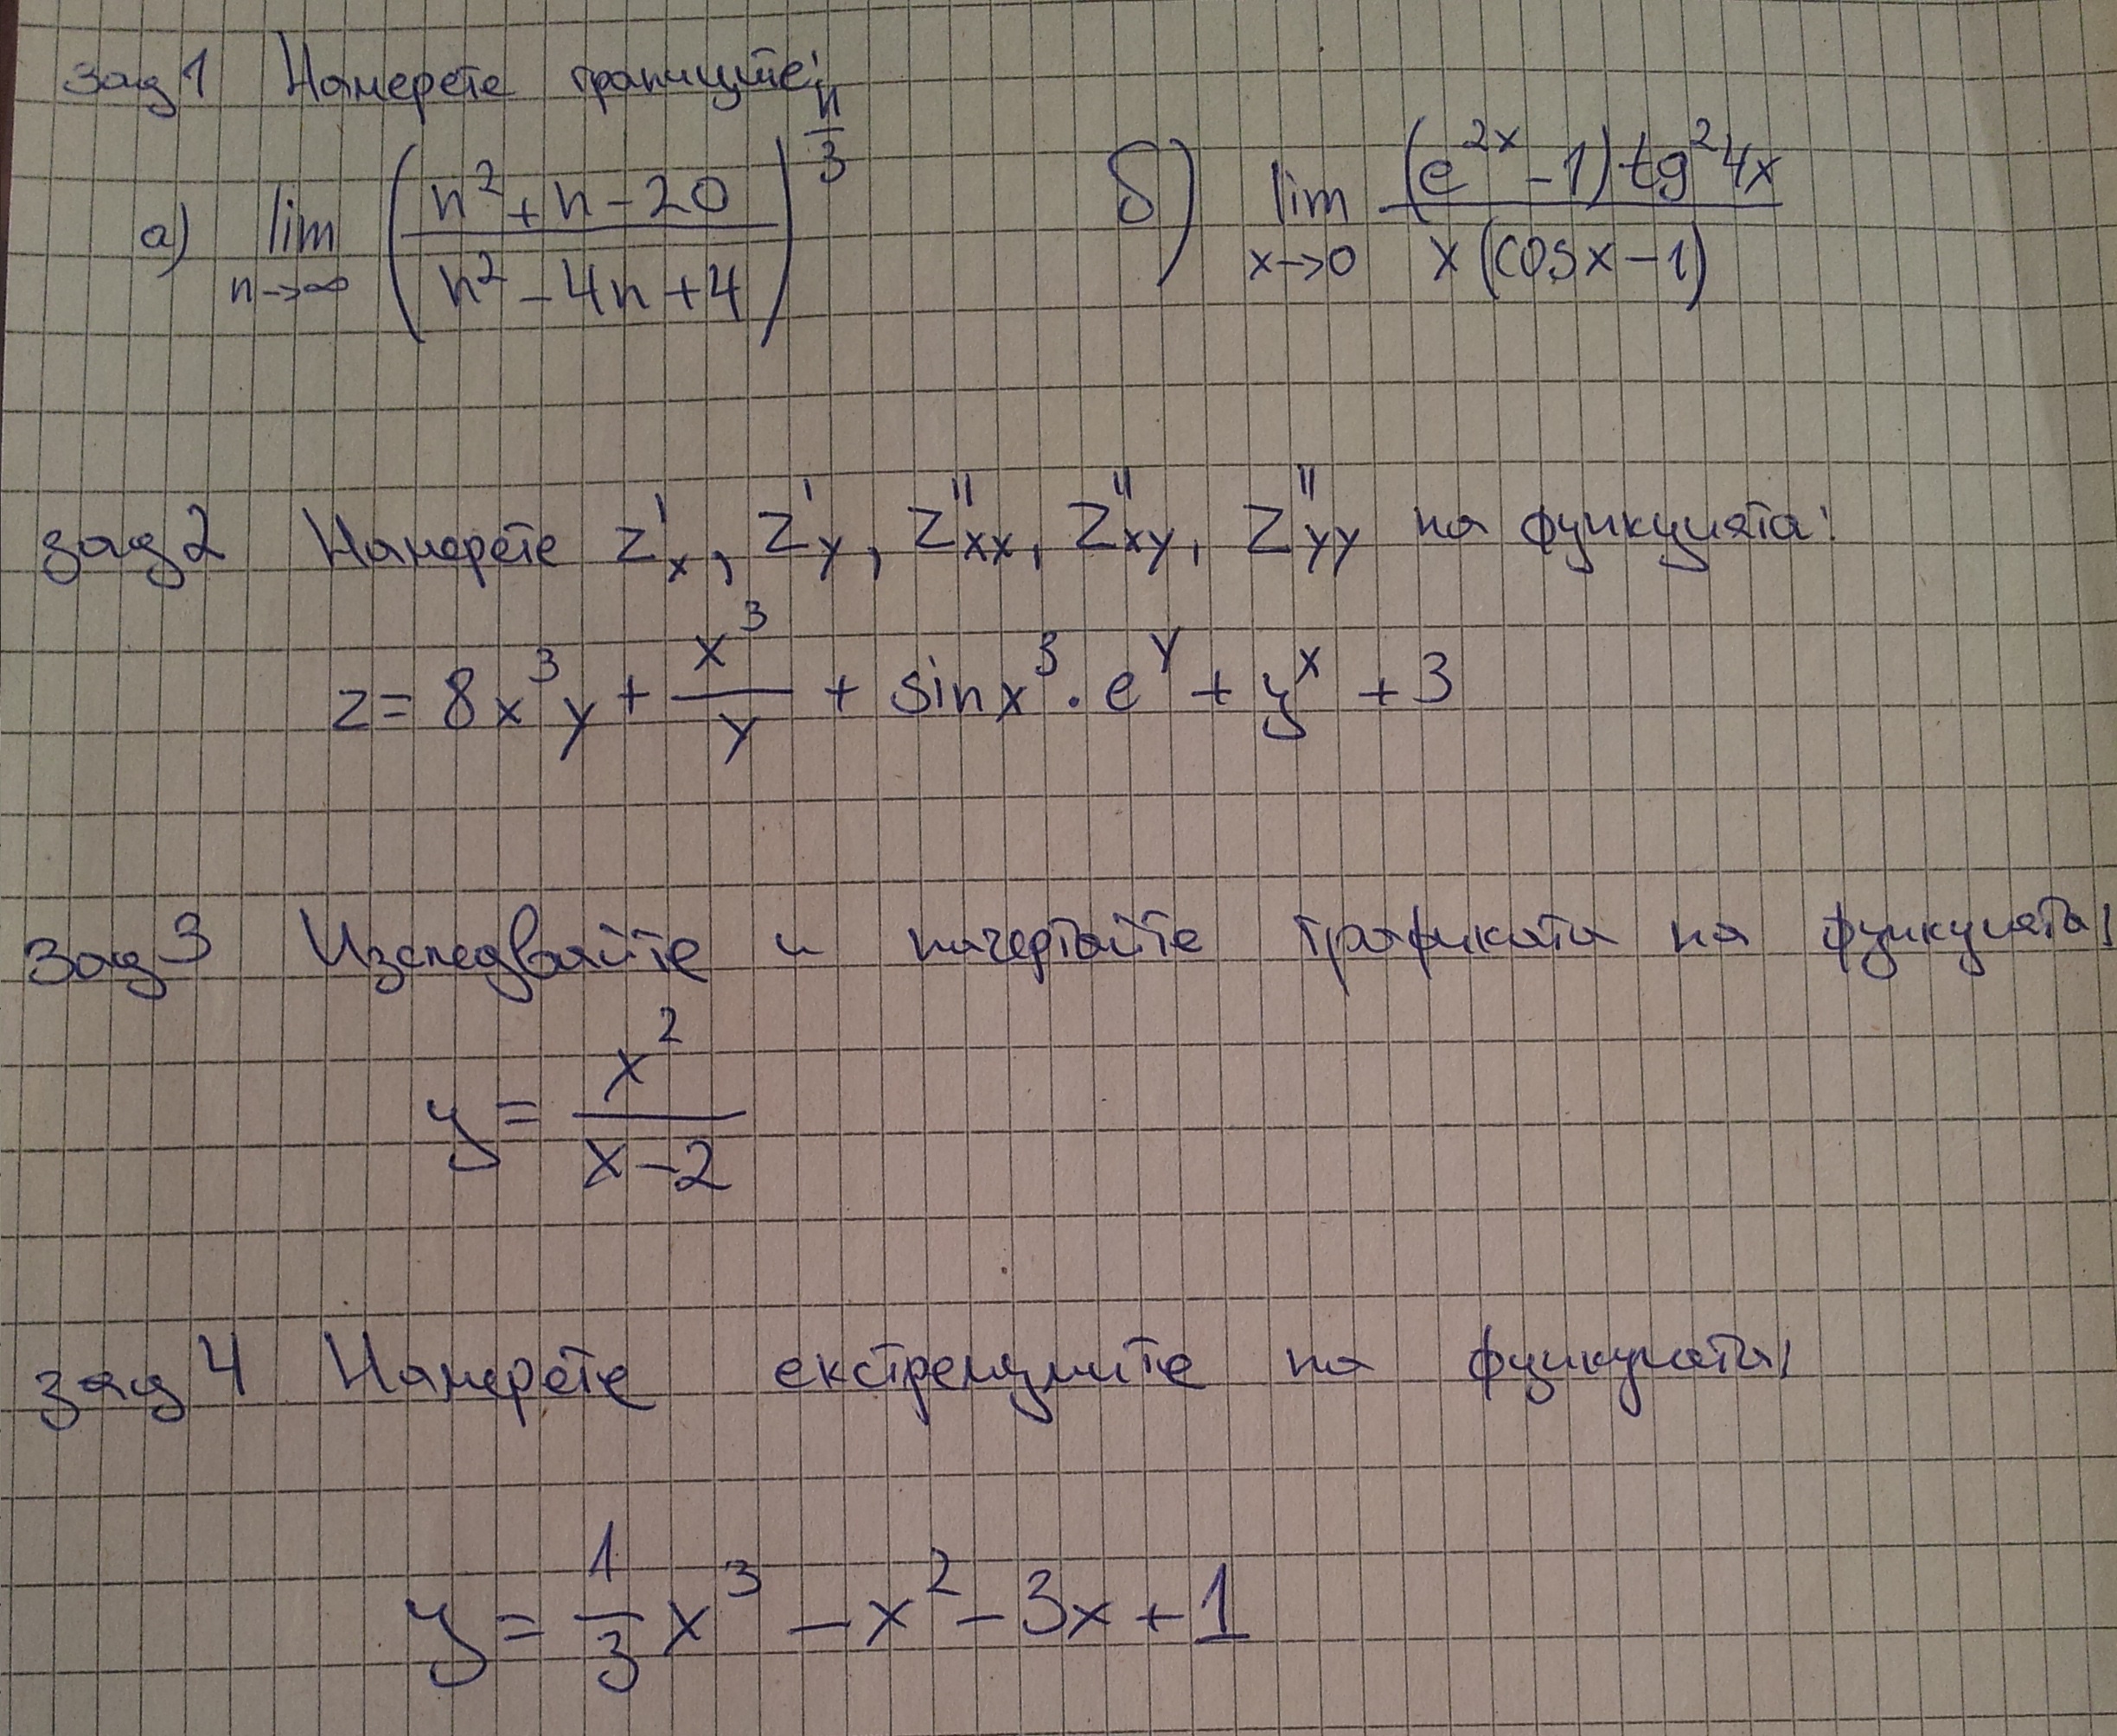 зад 1 Намерете границите:
а) lim n→∞ ((n²+n-20)/(n²-4n+4))^(n/3) б) lim x→0 ((e^(2x)-1)tg²4x)/(x(cosx-1))
зад 2 Намерете z'x, z'y, z''xx, z''xy, z''yy на функцията:
z = 8x³y + x³/y + sinx³ . e^y + y^x + 3
зад 3 Изследвайте и начертайте графиката на функцията:
y = x²/(x-2)
зад 4 Намерете екстремумите на функцията:
y = 1/3 x³ - x² - 3x + 1